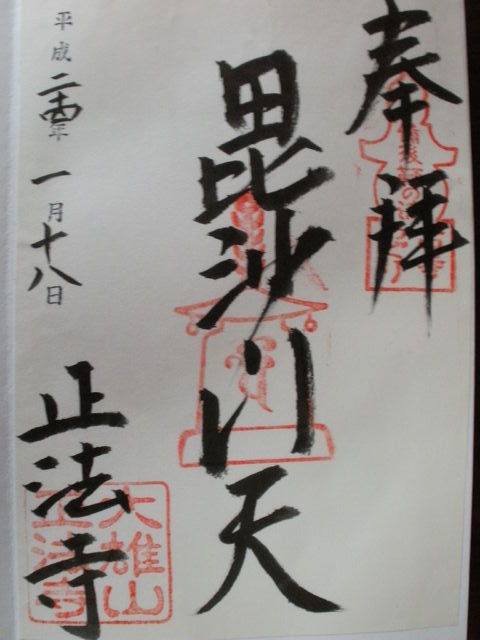 奉拝
毘沙門天
平成二十四年一月十八日
正法寺
大雄山
正法寺